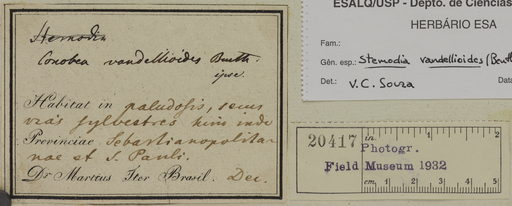 Stemodia
Conobea vandellioides Benth.
ipse.
Habitat in paludosis, secus
vias sylvestres hinc inde
Provinciae Sebastianopolita-
nae et S. Pauli.
Dr Martius Iter Brasil. Dec.
ESALQ/USP - Depto. de Ciências
HERBÁRIO ESA
Fam.:
Gên. esp.: Stemodia vandellioides (Benth
Det.: V.C. Souza Data
20417 in. 1 2
Photogr.
Field Museum 1932
cm. 1 2 3 4 5